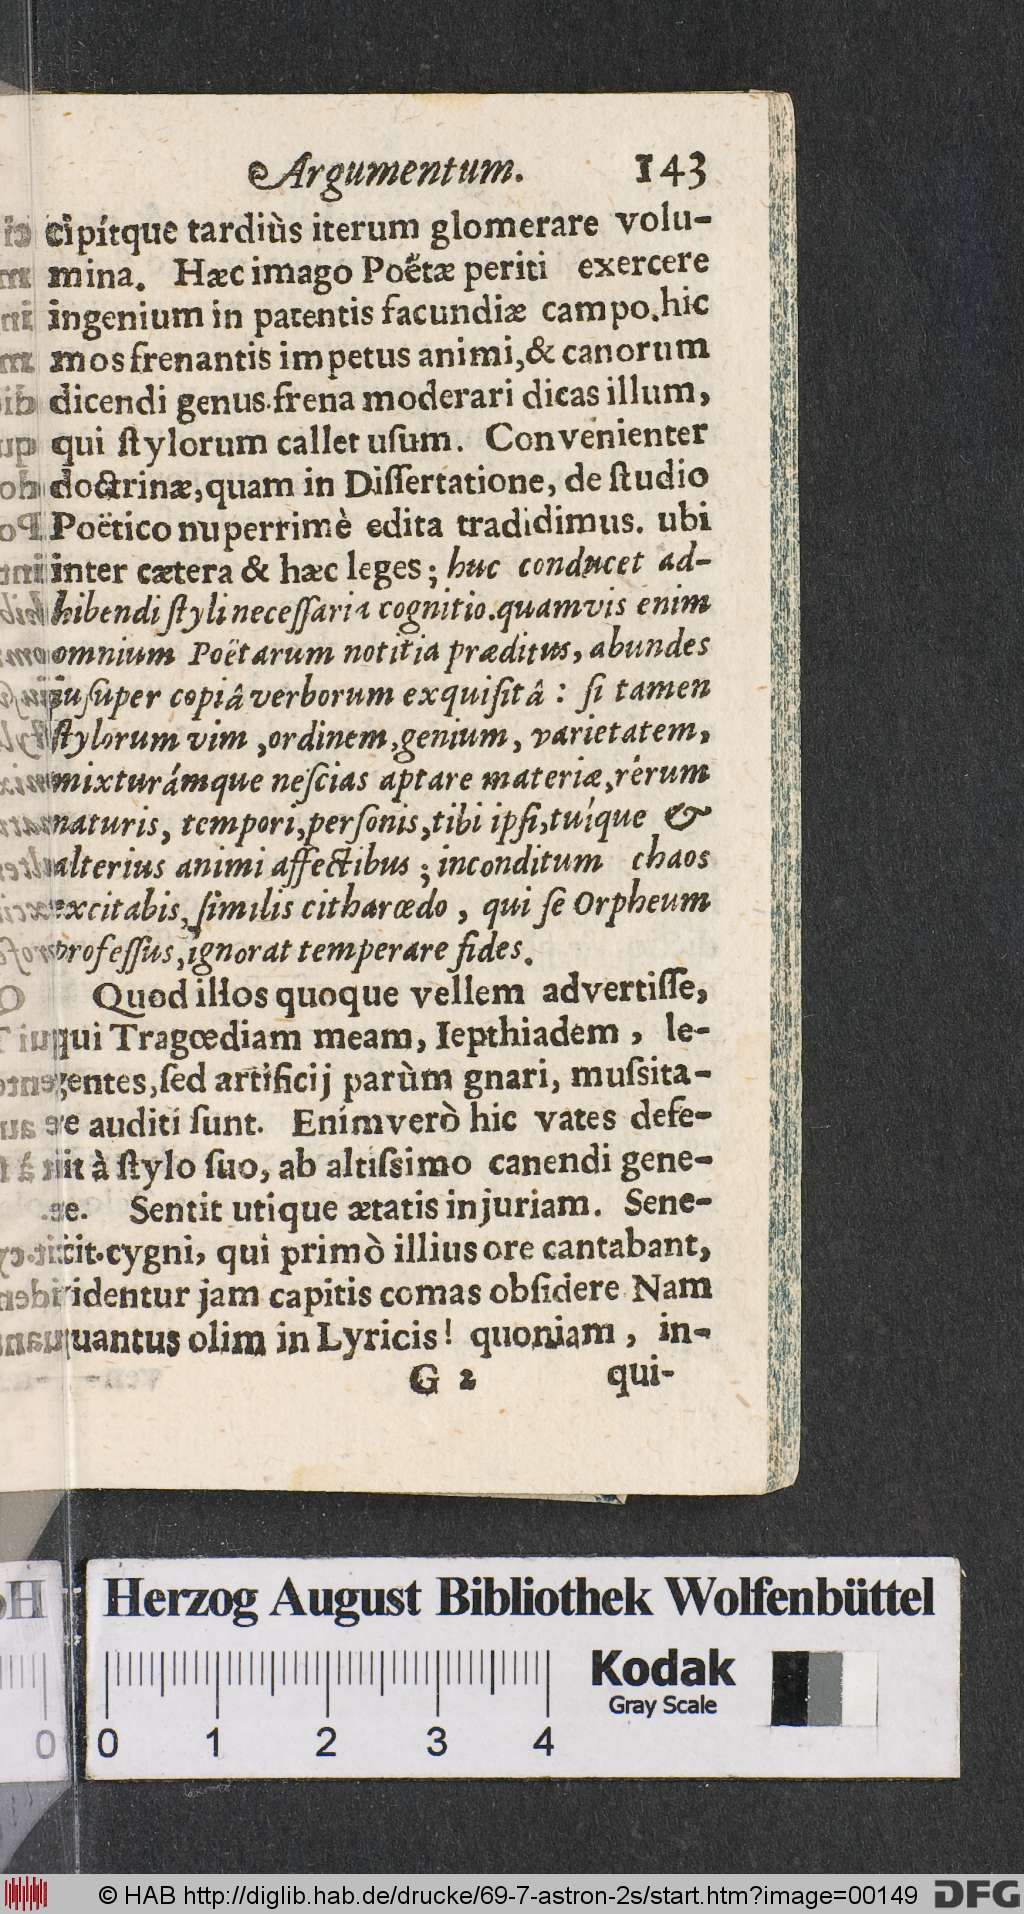 Argumentum. 143
cipítque tardiùs iterum glomerare volu-
mina. Hæc imago Poëtæ periti exercere
ingenium in patentis facundiæ campo. hic
mos frenantis impetus animi, & canorum
dicendi genus. frena moderari dicas illum,
qui ſtylorum callet uſum. Convenienter
doctrinæ, quam in Diſſertatione, de ſtudio
Poëtico nuperrimè edita tradidimus. ubi
inter cætera & hæc leges; huc conducet ad-
hibendi ſtyli neceſſaria cognitio. quamvis enim
omnium Poëtarum notitia præditus, abundes
inſuper copiâ verborum exquiſitâ: ſi tamen
ſtylorum vim, ordinem, genium, varietatem,
mixturámque neſcias aptare materiæ, rerum
naturis, tempori, perſonis, tibi ipſi, tuíque &
alterius animi affectibus; inconditum chaos
excitabis, ſimilis citharœdo, qui ſe Orpheum
profeſſus, ignorat temperare fides.
Quod illos quoque vellem advertiſſe,
qui Tragœdiam meam, Iepthiadem, le-
gentes, ſed artificij parùm gnari, muſsita-
re auditi ſunt. Enimverò hic vates defe-
it à ſtylo ſuo, ab altiſsimo canendi gene-
re. Sentit utique ætatis injuriam. Sene-
cit. cygni, qui primò illius ore cantabant,
videntur jam capitis comas obſidere Nam
quantus olim in Lyricis! quoniam, in-
G 2 qui-
Herzog August Bibliothek Wolfenbüttel
Kodak
Gray Scale
0 0 1 2 3 4
© HAB http://diglib.hab.de/drucke/69-7-astron-2s/start.htm?image=00149 DFG